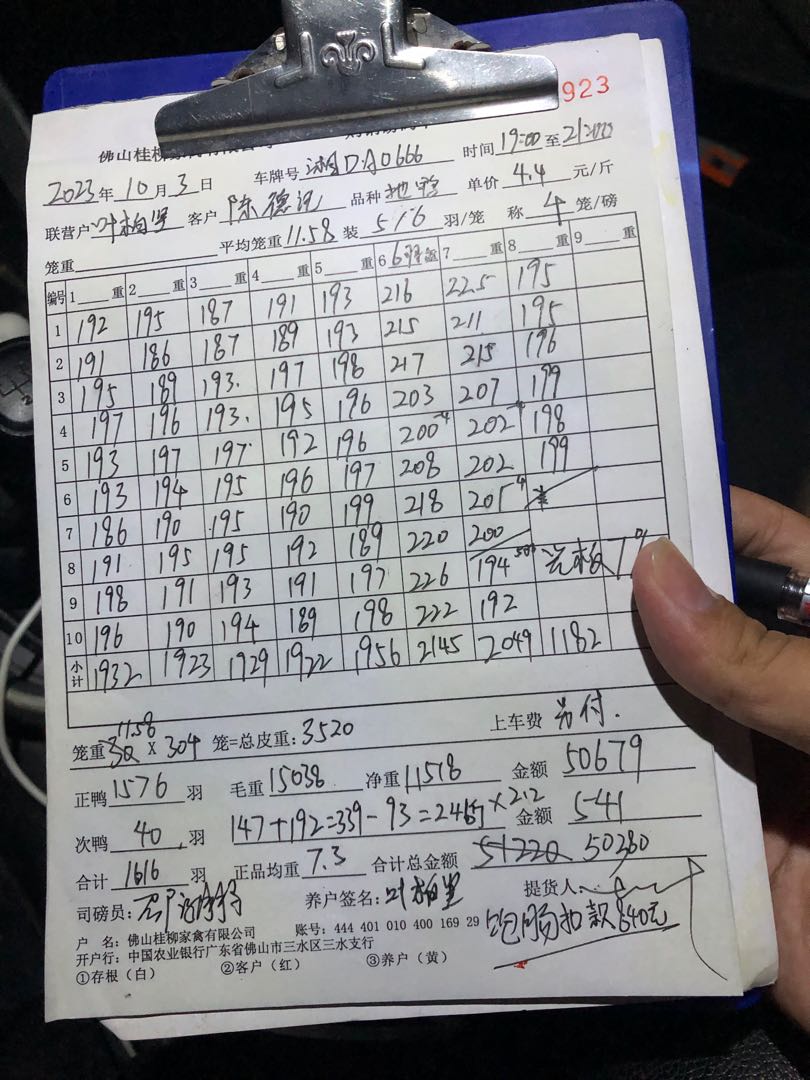 923
佛山桂柳
2023年10月3日 车牌号 湘D·A0666 时间 19:00 至 21
联营户 叶柏坚 客户 陈德 品种 单价 4.4 元/斤
笼重 平均笼重 11.58 装 5/6 羽/笼 称 4 笼/磅
编号 1 重 2 重 3 重 4 重 5 重 6 6羽 重 7 重 8 重 9 重
1 192 195 187 191 193 216 225 195
2 191 186 187 189 193 215 211 195
3 195 189 193. 197 198 217 215 196
4 197 196 193. 195 196 203 207 199
5 193 197 197 192 196 200 -4 202 -4 198
6 193 194 195 196 197 208 202 199
7 186 190 195 190 199 218 205 -4
8 191 195 195 192 189 220 200
9 198 191 193 191 197 226 194 7%
10 196 190 194 189 198 222 192
小计 1932 1923 1929 1922 1956 2145 2049 1182
11.58
笼重 X 304 笼=总皮重: 3520 上车费 另付.
正鸭 1576 羽 毛重 15038 净重 11518 金额 50679
次鸭 40 羽 147+192=339-93=246斤×2.2 金额 541
合计 1616 羽 正品均重 7.3 合计总金额 51220 50380
司磅员: 养户签名: 叶柏坚 提货人
饱肠扣款840元
户 名: 佛山桂柳家禽有限公司 账号: 444 401 010 400 169 29
开户行: 中国农业银行广东省佛山市三水区三水支行
①存根(白) ②客户(红) ③养户(黄)